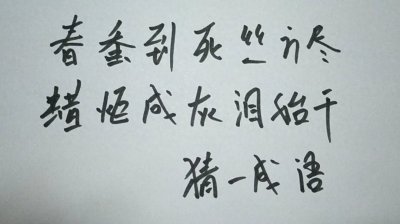 春蚕到死丝方尽
蜡炬成灰泪始干
猜一成语